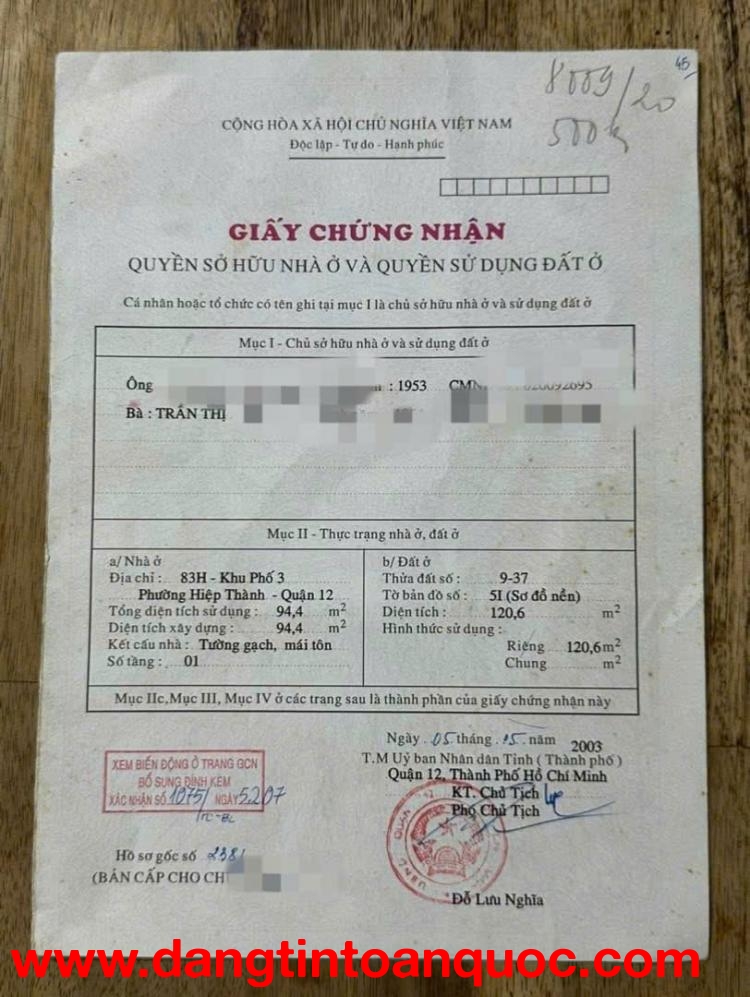 45
8009/20
500k
CỘNG HÒA XÃ HỘI CHỦ NGHĨA VIỆT NAM
Độc lập - Tự do - Hạnh phúc
GIẤY CHỨNG NHẬN
QUYỀN SỞ HỮU NHÀ Ở VÀ QUYỀN SỬ DỤNG ĐẤT Ở
Cá nhân hoặc tổ chức có tên ghi tại mục I là chủ sở hữu nhà ở và sử dụng đất ở
Mục I - Chủ sở hữu nhà ở và sử dụng đất ở
Ông : 1953 CMN
Bà : TRẦN THỊ
Mục II - Thực trạng nhà ở, đất ở
a/ Nhà ở
Địa chỉ : 83H - Khu Phố 3
Phường Hiệp Thành - Quận 12
Tổng diện tích sử dụng : 94,4 m2
Diện tích xây dựng : 94,4 m2
Kết cấu nhà : Tường gạch, mái tôn
Số tầng : 01
b/ Đất ở
Thửa đất số : 9-37
Tờ bản đồ số : 5I (Sơ đồ nền)
Diện tích : 120,6 m2
Hình thức sử dụng :
Riêng 120,6m2
Chung m2
Mục IIc,Mục III, Mục IV ở các trang sau là thành phần của giấy chứng nhận này
Ngày 05 tháng 15 năm 2003
T.M Uỷ ban Nhân dân Tỉnh ( Thành phố )
Quận 12, Thành Phố Hồ Chí Minh
KT. Chủ Tịch
Phó Chủ Tịch
Đỗ Lưu Nghĩa
XEM BIẾN ĐỘNG Ở TRANG GCN
BỔ SUNG ĐÍNH KÈM
XÁC NHẬN SỐ 1075/ NGÀY 5.2.07
Hồ sơ gốc số 2381
(BẢN CẤP CHO CH
www.dangtintoanquoc.com